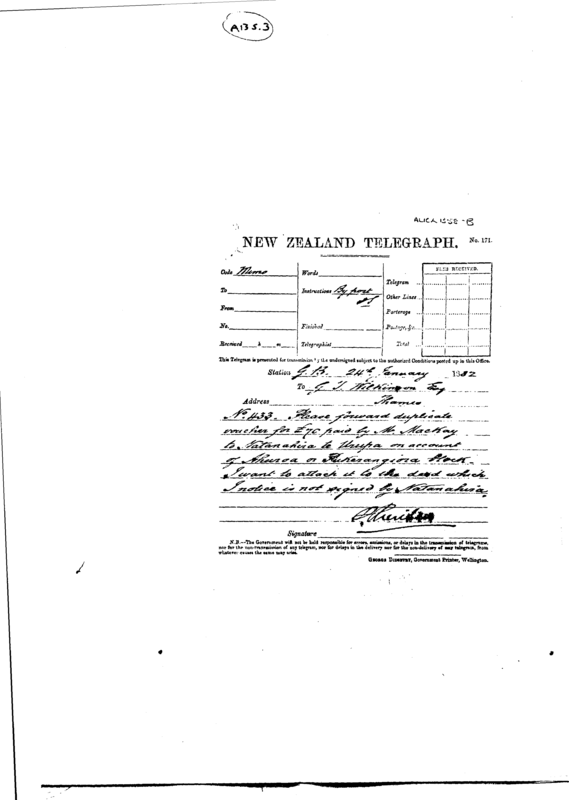 A135.3
NEW ZEALAND TELEGRAPH. No. 171.
Code Memo
To
From
No.
Received h m
Words
Instructions By post
Finished
Telegraphist
FEES RECEIVED.
Telegram
Other Lines
Porterage
Postage, &c.
Total
This Telegram is presented for transmission by the undersigned subject to the authorized Conditions posted up in this Office.
Station G.B. 24th January 1882
To G. T. Wilkinson Esq
Address Thames
No. 433. Please forward duplicate
voucher for £70 paid by Mr. Mackay
to Natanahira te on account
of or Pukerangiora block.
I want to attach it to the deed which
I notice is not signed by Natanahira.
P Sheridan
Signature
N.B.—The Government will not be held responsible for errors, omissions, or delays in the transmission of telegrams,
nor for the non-transmission of any telegram, nor for delays in the delivery nor for the non-delivery of any telegram, from
whatever causes the same may arise.
GEORGE DIDSBURY, Government Printer, Wellington.